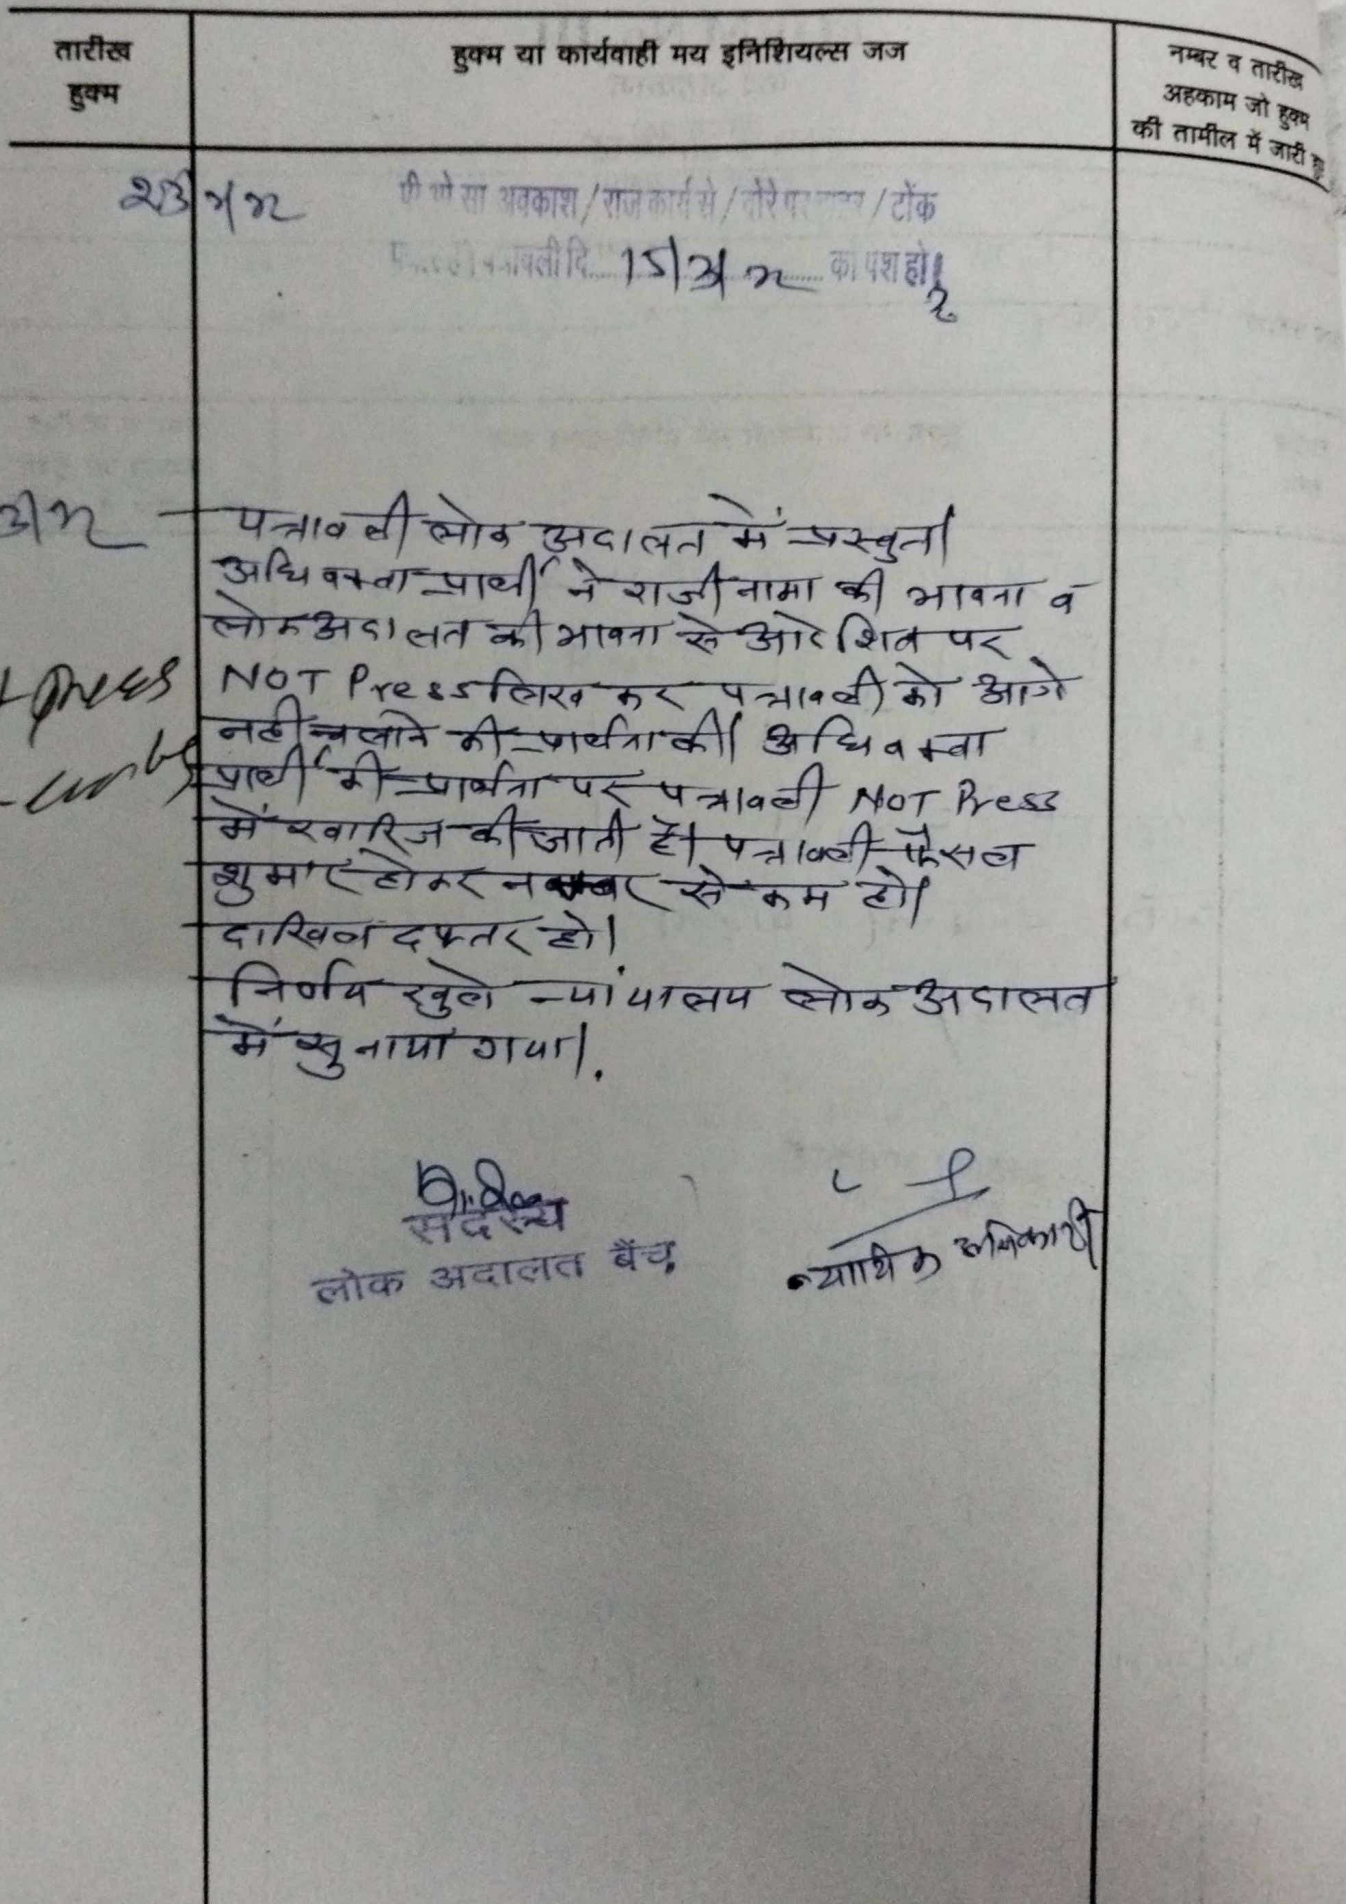 तारीख
हुक्म
हुक्म या कार्यवाही मय इनिशियल्स जज
नम्बर व तारीख
अहकाम जो हुक्म
की तामील में जारी हुए
अवकाश/राजकार्य से/दौरे पर /टोंक
दि. 15/3/22 को पेश हो।
पत्रावली लोक अदालत में प्रस्तुत।
अधिवक्ता प्रार्थी ने राजीनामा की भावना व
लोक अदालत की भावना से आदेशिका पर
NOT Press लिखकर पत्रावली को आगे
नहीं चलाने की प्रार्थना की। अधिवक्ता
प्रार्थी की प्रार्थना पर पत्रावली NOT Press
में खारिज की जाती है। पत्रावली फैसल
शुमार होकर नम्बर से कम हो।
दाखिल दफ्तर हो।
निर्णय खुले न्यायालय लोक अदालत
में सुनाया गया।
press
सदस्य
लोक अदालत बैंच,
न्यायिक अधिकारी